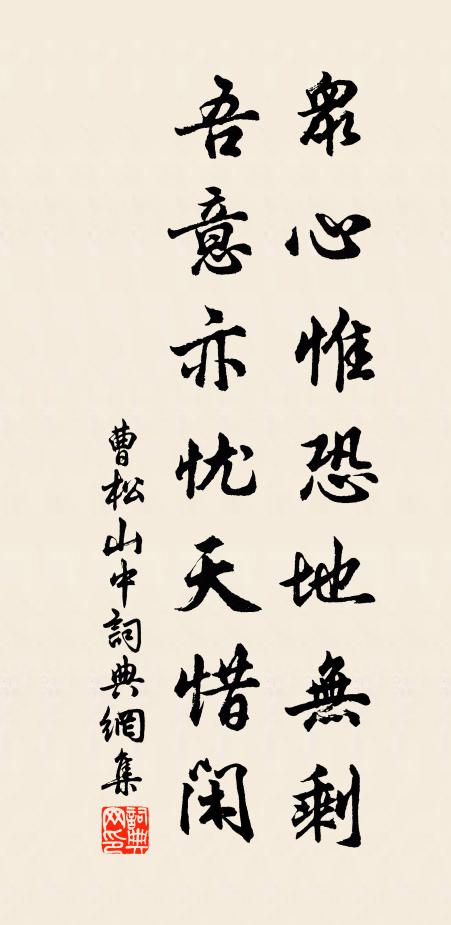 眾心惟恐地無剩
吾意亦忧天惜闲
曹松山中詞典網集
詞典网印